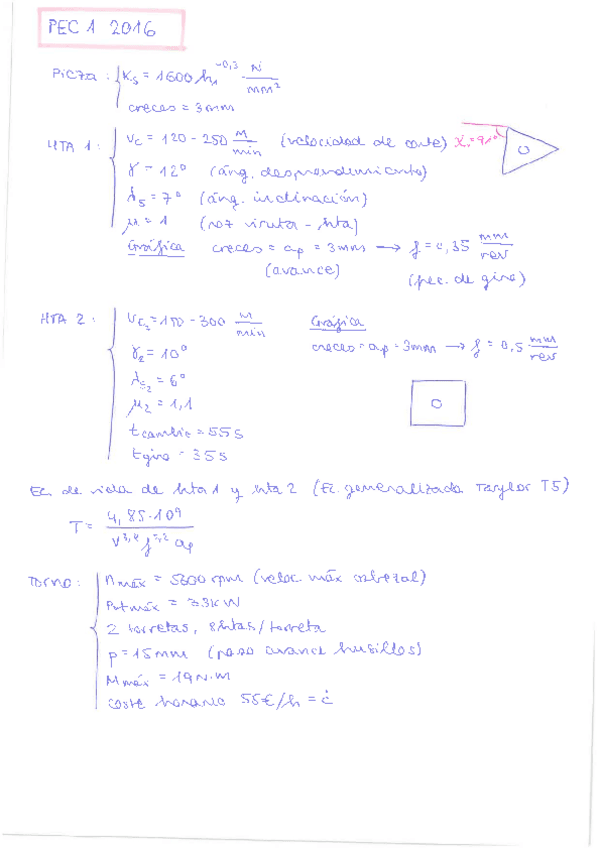 PEC 1 2016
Pieza: Ks = 1600 h1^-0,3 N/mm²
creces = 3mm
HTA 1: Vc = 120 - 250 m/min (velocidad de corte)
γ = 12° (áng. desprendimiento)
λs = 7° (áng. inclinación)
μ = 1 (roz viruta - hta)
Gráfica creces = ap = 3mm → f = 0,35 mm/rev
(avance) (pec. de giro)
HTA 2: Vc2 = 150 - 300 m/min Gráfica
γ2 = 10° creces = ap = 3mm → f = 0,5 mm/rev
λs2 = 6°
μ2 = 1,1
tcambio = 55s
tgiro = 35s
Ec. de vida de hta 1 y hta 2 (Ec. generalizada Taylor T5)
T = 4,85·10⁹ / v^3,4 f^2,2 ap
Torno: nmáx = 5300 rpm (veloc. máx cabezal)
Potmáx = 33kW
2 torretas, 8htas/torreta
p = 15mm (paso avance husillos)
Mmáx = 19N·m
coste horario 55€/h = ċ